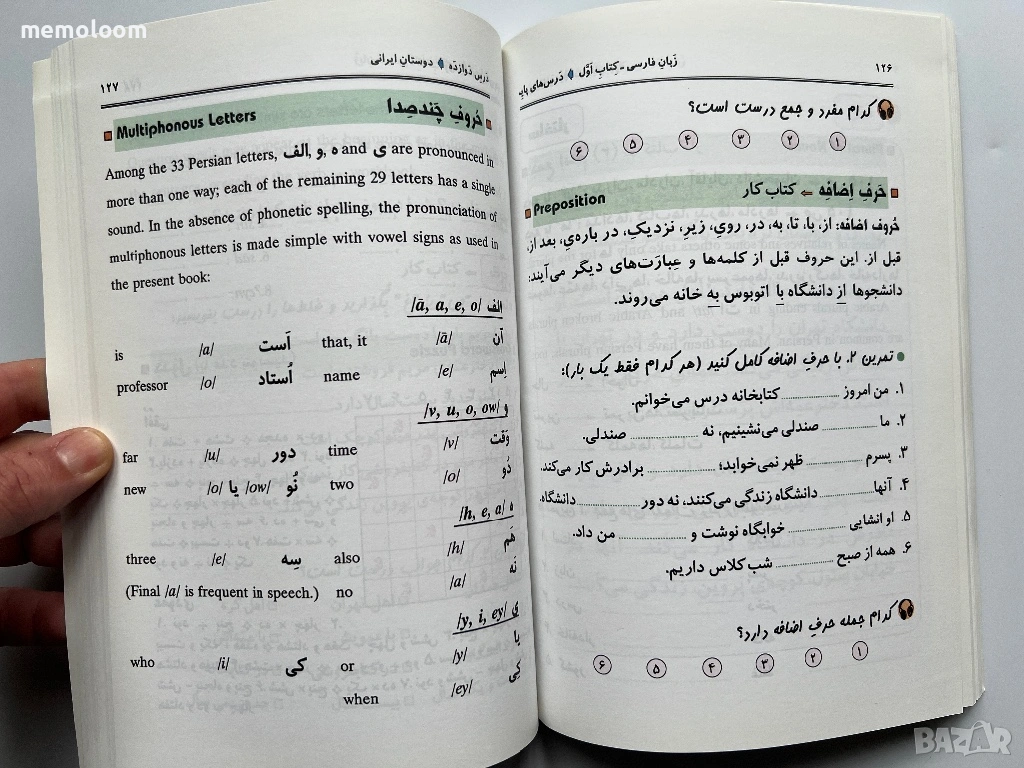 memoloom
۱۲۶
زَبانِ فارسی - کِتابِ اَوَّل ♦ دَرس‌های پایه
کدام مفرد و جمع درست است؟
۱ ۲ ۳ ۴ ۵ ۶
حَرفِ اِضافِه ← کتاب کار
Preposition
حُروف اضافه: از، با، تا، به، در، رویِ، زیرِ، نزدیکِ، در باره‌یِ، بعد از،
قبل از. این حروف قبل از کلمه‌ها و عِبارَت‌های دیگر می‌آیند:
دانشجوها از دانشگاه با اتوبوس به خانه می‌روند.
تمرین ۲. با حرفِ اضافه کامل کنید (هر کدام فقط یک بار):
۱. من امروز ........ کتابخانه درس می‌خوانم.
۲. ما ........ صندلی می‌نشینیم، نه ........ صندلی.
۳. پسرم ........ ظهر نمی‌خوابد؛ ........ برادرش کار می‌کند.
۴. آنها ........ دانشگاه زندگی می‌کنند، نه دور ........ دانشگاه.
۵. او انشایی ........ خوابگاه نوشت و ........ من داد.
۶. همه از صبح ........ شب کلاس داریم.
کدام جمله حرفِ اضافه دارد؟
۱ ۲ ۳ ۴ ۵ ۶
دَرسِ دَوازدَه ♦ دوستانِ ایرانی
۱۲۷
حُروفِ چَندصِدا
Multiphonous Letters
Among the 33 Persian letters, الف, و, ه and ی are pronounced in
more than one way; each of the remaining 29 letters has a single
sound. In the absence of phonetic spelling, the pronunciation of
multiphonous letters is made simple with vowel signs as used in
the present book:
الف /ā, a, e, o/
is /a/ اَست that, it /ā/ آن
professor /o/ اُستاد name /e/ اِسم
و /v, u, o, ow/
far /u/ دور time /v/ وَقت
new /o/ یا /ow/ نُو two /o/ دُو
ه /h, e, a/
three /e/ سِه also /h/ هَم
(Final /a/ is frequent in speech.) no /a/ نَه
ی /y, i, ey/
who /i/ کی or /y/ یا
when /ey/ کِی
BAZAR